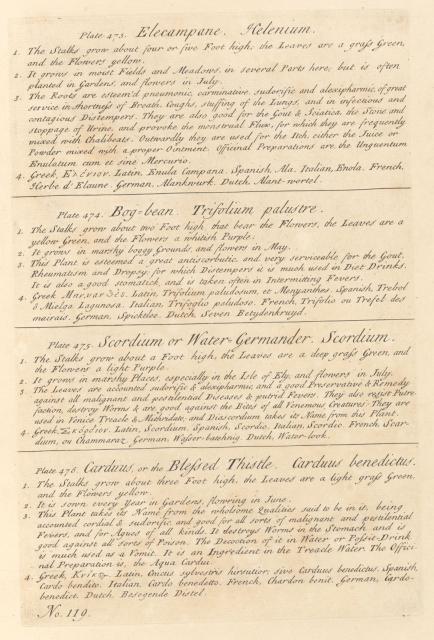 Plate 473. Elecampane. Helenium.
1. The Stalks grow about four or five Foot high; the Leaves are a graſs Green,
and the Flowers yellow.
2. It grows in moist Fields and Meadows, in several Parts here; but is often
planted in Gardens, and flowers in July.
3. The Roots are esteem'd pneumonic, carminative, sudorific and alexipharmic, of great
service in Shortneſs of Breath, Coughs, stuffing of the Lungs, and in infectious and
contagious Distempers. They are also good for the Gout & Sciatica, the Stone and
stoppage of Urine, and provoke the menstrual Flux, for which they are frequently
mixed with Chalibeats. Outwardly they are used for the Itch, either the Juice or
Powder mixed with a proper Ointment. Officinal Preparations are, the Unguentum
Enulatum cum et sine Mercurio.
4. Greek, Ἑλένιον. Latin, Enula Campana. Spanish, Ala. Italian, Enola. French,
Herbe d'Elaune. German, Alantwurk. Dutch, Alant-wortel.
Plate 474. Bog-bean. Trifolium palustre.
1. The Stalks grow about two Foot high, that bear the Flowers, the Leaves are a
yellow Green, and the Flowers a whitish Purple.
2. It grows in marshy boggy Grounds, and flowers in May.
3. This Plant is esteemed a great antiscorbutic, and very serviceable for the Gout,
Rheumatism and Dropsy; for which Distempers it is much used in Diet Drinks.
It is also a good stomatick, and is taken often in Intermitting Fevers.
4. Greek Latin, Trifolium paludosum, et Menyanthes. Spanish, Trebol
ô Mielga Lagunosa. Italian, Trifoglio paludoso. French, Trifolio ou Trefel des
mairais. German, Spicktloe. Dutch, Seven Betydenkruyd.
Plate 475. Scordium or Water-Germander. Scordium.
1. The Stalks grow about a Foot high, the Leaves are a deep graſs Green, and
the Flowers a light Purple.
2. It grows in marshy Places, especially in the Isle of Ely, and flowers in July.
3. The Leaves are accounted sudorific & alexipharmic, and a good Preservative & Remedy
against all malignant and pestilential Diseases & putrid Fevers. They also resist Putre-
faction, destroy Worms & are good against the Bites of all Venemous Creatures. They are
used in Venice Treacle & Mithridate; and Diascordium takes its Name from this Plant.
4. Greek, Σκόρδιον. Latin, Scordium. Spanish, Scordio. Italian, Scordio. French, Scar-
dium, ou Chammaraz. German, Waſser-batehnig. Dutch, Water-look.
Plate 476. Carduus, or the Bleſsed Thistle. Carduus benedictus.
1. The Stalks grow about three Foot high, the Leaves are a light graſs Green,
and the Flowers yellow.
2. It is sown every Year in Gardens, flowring in June.
3. This Plant takes its Name from the wholsome Qualities said to be in it; being
accounted cordial & sudorific, and good for all sorts of malignant and pestilential
Fevers, and for Agues of all kinds. It destroys Worms in the Stomach and is
good against all sorts of Poison. The Decoction of it in Water or Poſset-Drink
is much used as a Vomit. It is an Ingredient in the Treacle Water. The Offici-
nal Preparation is, the Aqua Cardui.
4. Greek, Latin, Cnicus sylvestris hirsutior, sive Carduus benedictus. Spanish,
Cardo bendito. Italian, Cardo benedetto. French, Chardon benit. German, Cardo-
benedict. Dutch, Besegende Distel.
No. 119.